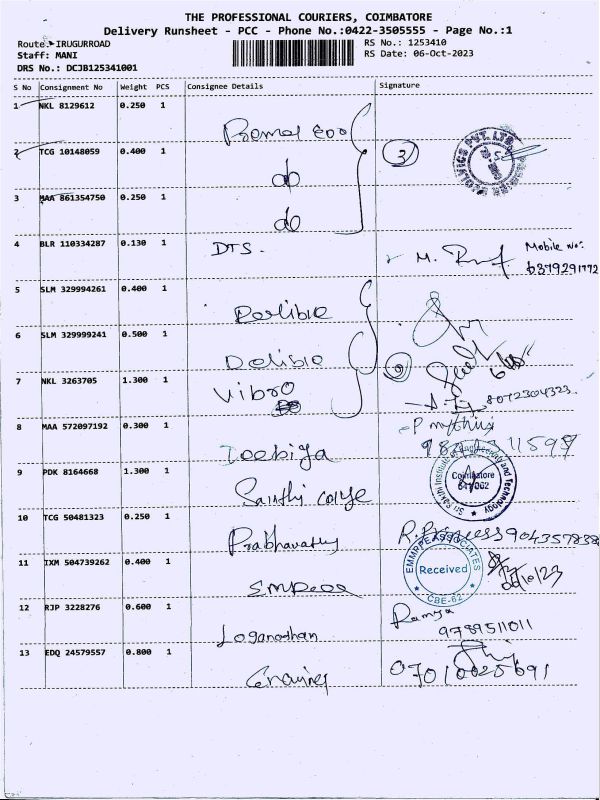 THE PROFESSIONAL COURIERS, COIMBATORE
Delivery Runsheet - PCC - Phone No.:0422-3505555 - Page No.:1
Route: IRUGURROAD
RS No.: 1253410
Staff: MANI
RS Date: 06-Oct-2023
DRS No.: DCJB125341001
S No Consignment No Weight PCS Consignee Details Signature
1 NKL 8129612 0.250 1
2 TCG 10148059 0.400 1 do 3
3 MAA 861354750 0.250 1 do
4 BLR 110334287 0.130 1 DTS. M. Mobile no:
6379291772
5 SLM 329994261 0.400 1
6 SLM 329999241 0.500 1
7 NKL 3263705 1.300 1 Vibro 8072304323
8 MAA 572097192 0.300 1
9 PDK 8164668 1.300 1 Sri Sakthi Institute of Engineering and Technology Coimbatore 641 062
10 TCG 50481323 0.250 1 Prabhavathy
11 IXM 504739262 0.400 1 Received CBE-62
12 RJP 3228276 0.600 1 Loganathan Ramya
9789511011
13 EDQ 24579557 0.800 1 07010025691